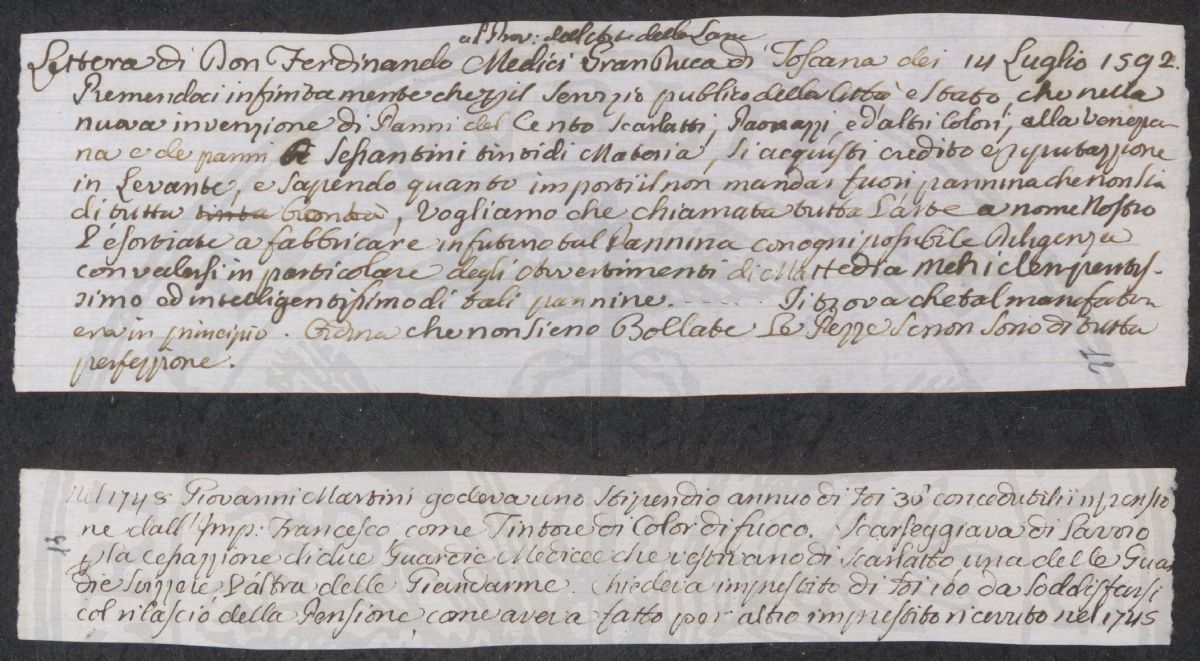 a Prov: dell'Arte della Lana
Lettera di Don Ferdinando Medici Gran Duca di Toscana dei 14 Luglio 1592.
Premendoci infinitamente che pil Servizio publico della Città e Stato, che nella
nuova invenzione di Panni del Cento Scarlatti, Paonazzi, ed'altri Colori, alla Venezia-
na e de panni Sessantini tinti di Materia, Si acquisti credito e reputazzione
in Levante, e Sapendo quanto importi il non mandar fuori pannina che non sia
di tutta tinta bontà, Vogliamo che chiamata tutta L'arte a nome Nostro
L'esortiate a fabbricare in futuro tal Pannina con ogni possibile Diligenza
con valersi in particolare degli Avvertimenti di Mehiclen peritis-
simo ed intelligentissimo di tali pannine. ...... Si trova che tal manifattu
era in principio. Ordina che non sieno Bollate Le Pezze Se non Sono di tutta
perfezzione.
nel 1748 Giovanni Martini godeva uno Stipendio annuo di toi 30 concedutili in pensio
ne dall'Imp: Francesco come Tintore di Color di fuoco. Scarseggiava di Lavoro
p la cessazzione di due Guardie Medicee che vestivano di Scarlatto una delle Guar
die Svizzere L'altra delle Giandarme. Chiedeva imprestito di toi 100 da Soddisfarsi
col rilascio della Pensione, come aveva fatto per altro imprestito ricevuto nel 1745